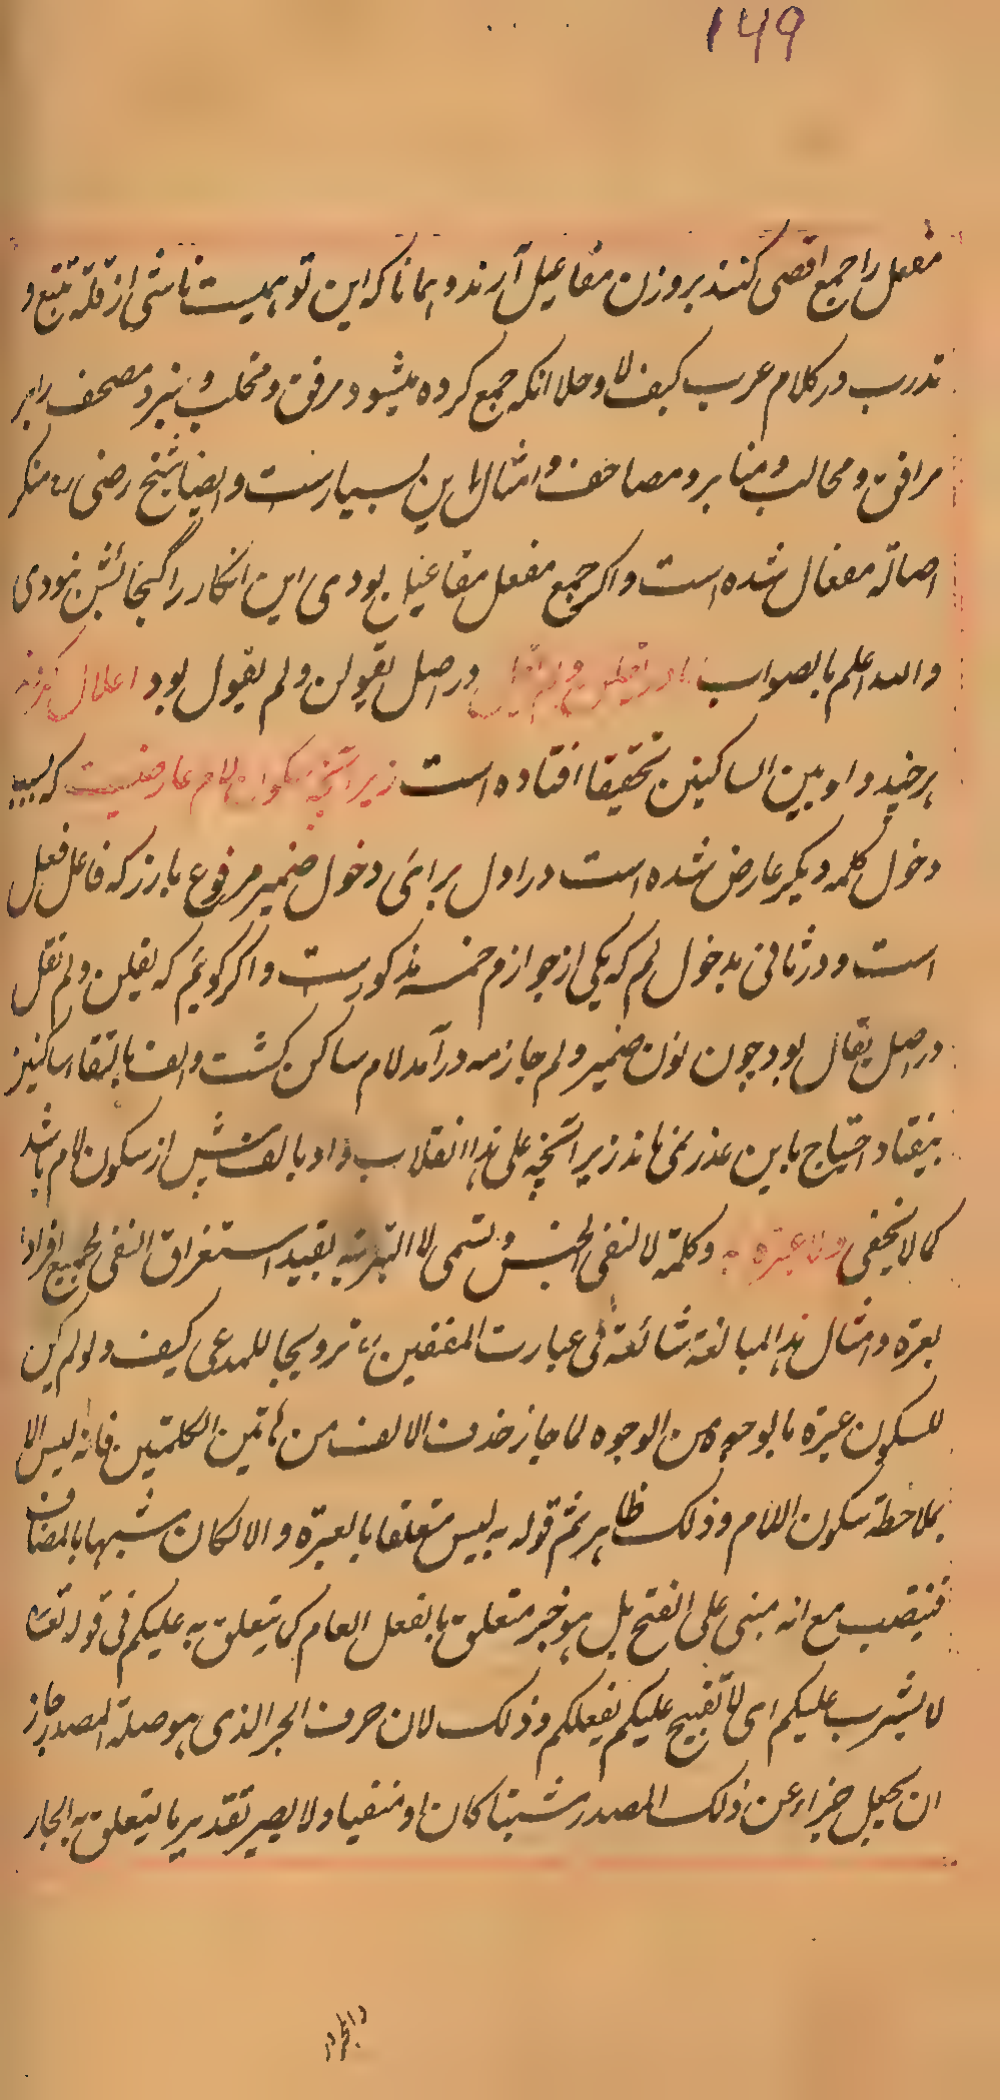 ۱۴۹
مفعل را جمع اقصی کنند بر وزن مفاعیل آرند و همانا که این توهمیست ناشی از قلة تتبع و
تدرب در کلام عرب کیف لا و حلا انکه جمع کرده میشود مرفق و مخلب و منبر و مصحف را بر
مرافق و مخالب و منابر و مصاحف و امثال این بسیارست و ایضا شیخ رضی ره منکر
اصالة مفعال شده است و اکر جمع مفعل مفاعیل بودی این انکار را گنجائش نبودی
و الله اعلم بالصواب در اصل یقولن و لم یقول بود اعلال کردند
هر چند واو بین الساکنین تحقیقا افتاده است زیرا آنچه سکون لام عارضیست که بسبب
دخول کلمه دیکر عارض شده است در اول برائ دخول ضمیر مرفوع بارز که فاعل فعل
است و در ثانی بدخول لم که یکی از جوازم خمسه مذکورست و اکر کوئیم که یقلن و لم یقل
در اصل یقال بود چون نون ضمیر و لم جازمه در آمد لام ساکن کشت و الف بالتقا ساکنین
بیفتاد احتیاج باین عذر نمی ماند زیرا آنچه علی هذا انقلاب واو بالف پیش از سکون لام باشد
کما لا یخفی و لا عبرة به و کلمة لا لنفی الجنس و تسمی لا التبریه یفید استغراق النفی لجمیع افراد
بعرة و امثال هذا المبالغة شائعة فی عبارت المفنین ترویجا للمدعی کیف و لو لم یکن
للسکون عبرة ما بوجه من الوجوه لما جاز حذف الالف من هاتین الکلمتین فانه لیس الا
بملاحظة سکون اللام و ذلک ظاهر ثم قوله به لیس متعلقا بالعبرة و الا لکان مشبها بالمضاف
فینتصب مع انه مبنی علی الفتح بل هو خبر متعلق بالفعل العام کما یتعلق به علیکم فی قوله تعا
لا یثرب علیکم ای لا تقبیح علیکم بفعلکم و ذلک لان حرف الجر الذی هو صلة المصدر جاز
ان یجعل خبرا عن ذلک المصدر مثبتا کان او منفیا و لا یصیر تقدیر ما یتعلق به الجار
و المجرور